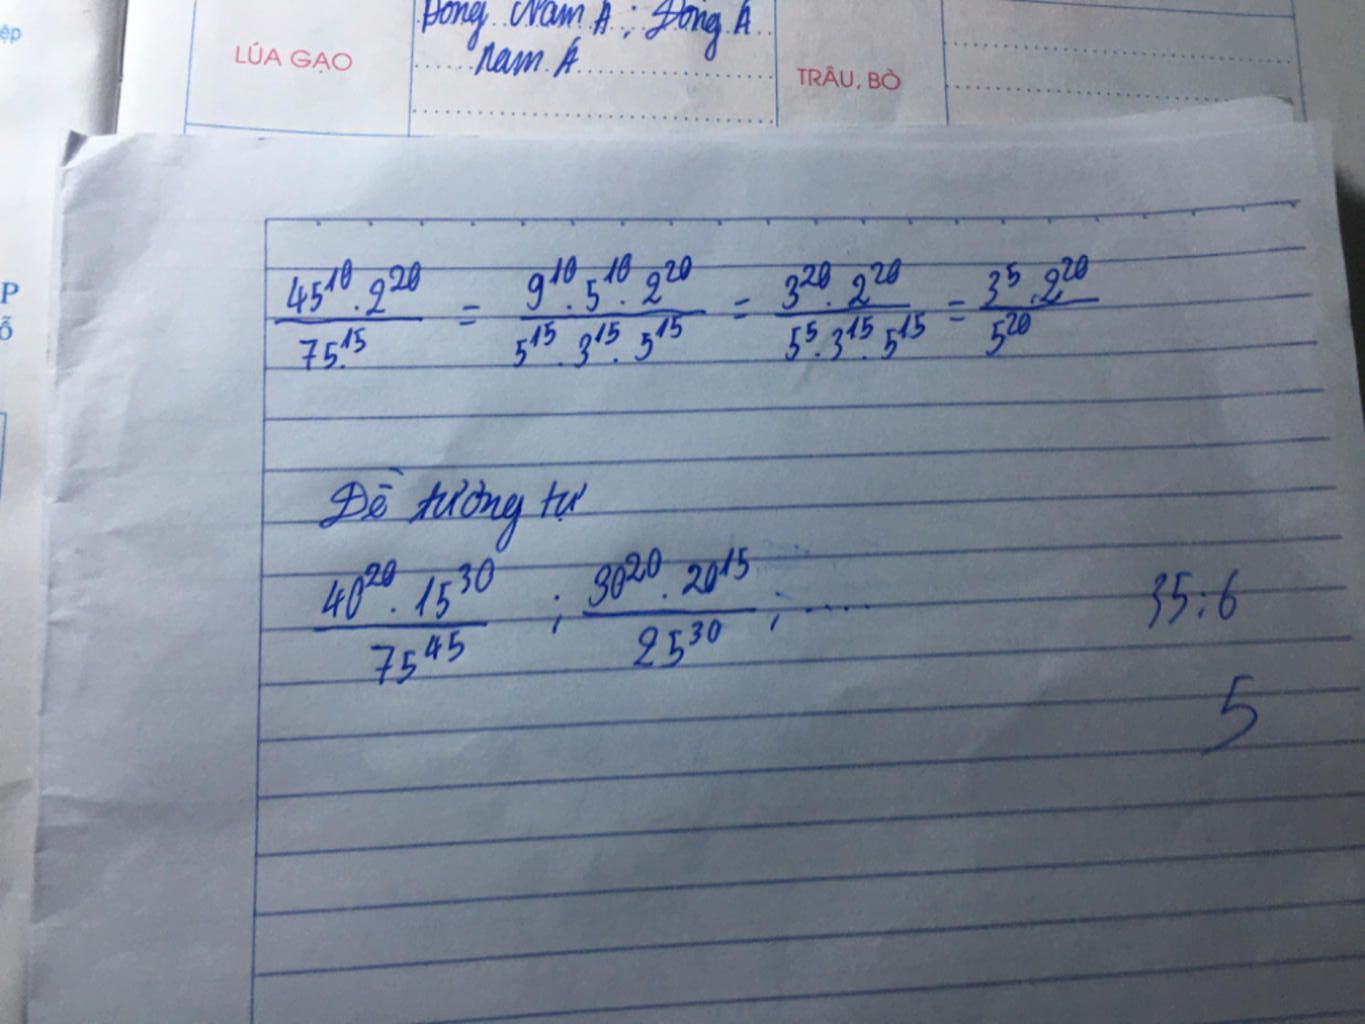 ệp
LÚA GẠO
Đông Nam Á ; Đông Á
nam Á
TRÂU, BÒ
P
ỗ
45¹⁰.2²⁰/75.¹⁵ = 9¹⁰.5¹⁰.2²⁰/5¹⁵.3¹⁵.5¹⁵ = 3²⁰.2²⁰/5⁵.3¹⁵.5¹⁵ = 3⁵.2²⁰/5²⁰
Đề tương tự
40²⁰.15³⁰/75⁴⁵ ; 30²⁰.20¹⁵/25³⁰ ; ....
35:6
5